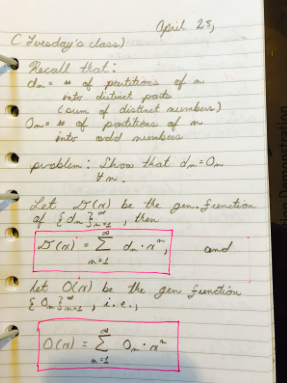 April 25,
(Tuesday's class)
Recall that:
dₙ = # of partitions of n
into distinct parts
(sum of distinct numbers)
Oₙ = # of partitions of n
into odd numbers
problem: Show that dₙ = Oₙ
∀n.
Let D(x) be the gen. function
of {dₙ}ₙ₌₁^∞, then
D(x) = ∑ₙ₌₁^∞ dₙ · xⁿ, and
Let O(x) be the gen function
{Oₙ}ₙ₌₁^∞, i.e.,
O(x) = ∑ₙ₌₁^∞ Oₙ · xⁿ